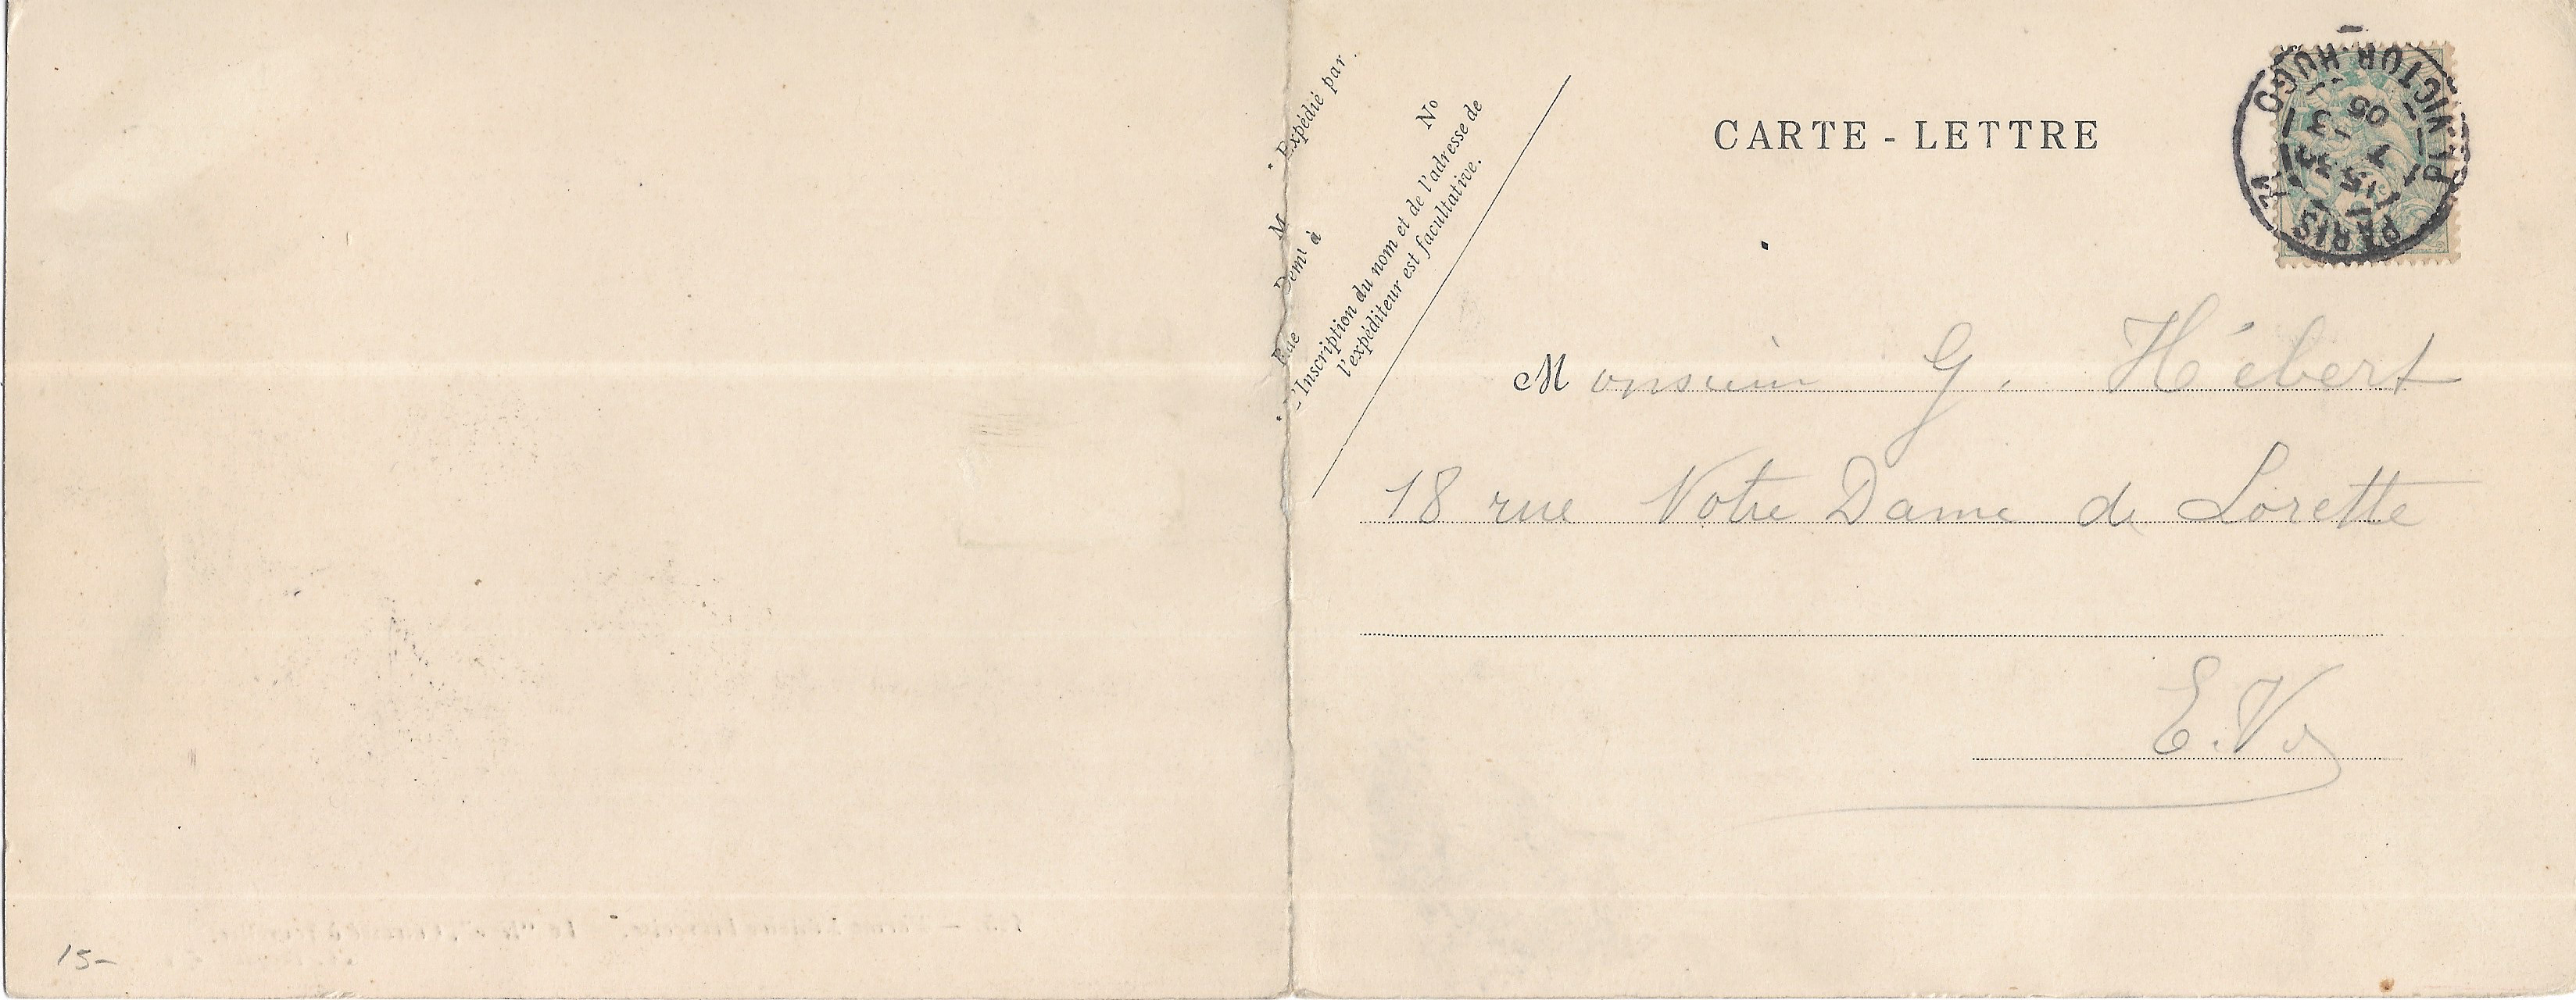 Expédié par
No
M
Rue
Demt à
L'Inscription du nom et de l'adresse de
l'expéditeur est facultative.
CARTE-LETTRE
PARIS
VICTOR HUGO
15
7
05
Monsieur G. Hébert
18 rue Notre Dame de Lorette
E.V.
15-